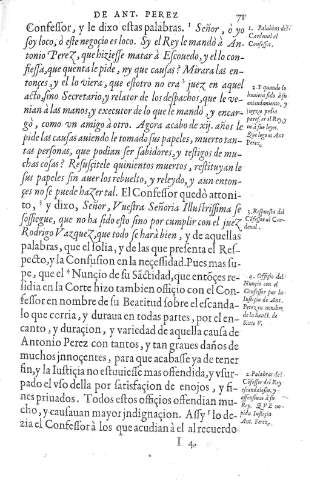 DE ANT. PEREZ
71
Confessor, y le dixo estas palabras. Señor, ò yo
soy loco, ò este negocio es loco. Sy el Rey le mandò à An-
tonio Perez, que hiziesse matar à Escouedo, y ello con-
fiessa, que quenta le pide, ny que causas? Mirara las en-
tonces, y el lo viera, que estotro no era juez en aquel
acto, sino Secretario, y relator de los despachos, que le ve-
nian à las manos, y executor de lo que le mandò, y encar-
gò, como un amigo à otro. Agora acabo de xij. años le
pide las causas auiendo le tomado sus papeles, muerto tan-
tas personas, que podian ser sabidores, y testigos de mu-
chas cosas? Resuscitele quinientos muertos, restituyan le
sus papeles sin auer los rebuelto, y releydo, y aun enton-
çes no se puede hazer tal. El Confessor quedò attoni-
to, y dixo, Señor, Vuestra Señoria Illustrissima se
sossiegue, que no ha sido esto sino por cumplir con el juez
Rodrigo Vazquez, que todo se harà bien, y de aquellas
palabras, que el solia, y de las que presenta el Res-
pecto, y la Confusion en la neçessidad. Pues mas su-
pe, que el Nunçio de su Sãctidad, que entõçes re-
sidia en la Corte hizo tambien officio con el Con-
fessor en nombre de su Beatitud sobre el escanda-
lo que corria, y duraua en todas partes, por el en-
canto, y duraçion, y variedad de aquella causa de
Antonio Perez con tantos, y tan graues daños de
muchos jnnoçentes, para que acabasse ya de tener
fin, y la Iustiçia no estuuiesse mas offendida, y vsur-
pado el vso della por satisfaçion de enojos, y fi-
nes priuados. Todos estos officios offendian mu-
cho, y causauan mayor jndignaçion. Assy lo de-
zia el Confessor à los que acudian à el al recuerdo
I 4
1. Palabras del
Cardinal al
Confessor.
Perez.
3. Respuesta del
Cõfessor al Car-
denal.
4. Offiçio del
Nunçio con el
Confessor por la
Iustiçia de Ant.
Perez, en nombre
de la Sanctit. de
Sixto V.
2. Palabras del
Cõfessor del Rey
escandalosas, y
offensiuas à su
Rey. QVE no
pida Iustiçia
Ant. Perez.